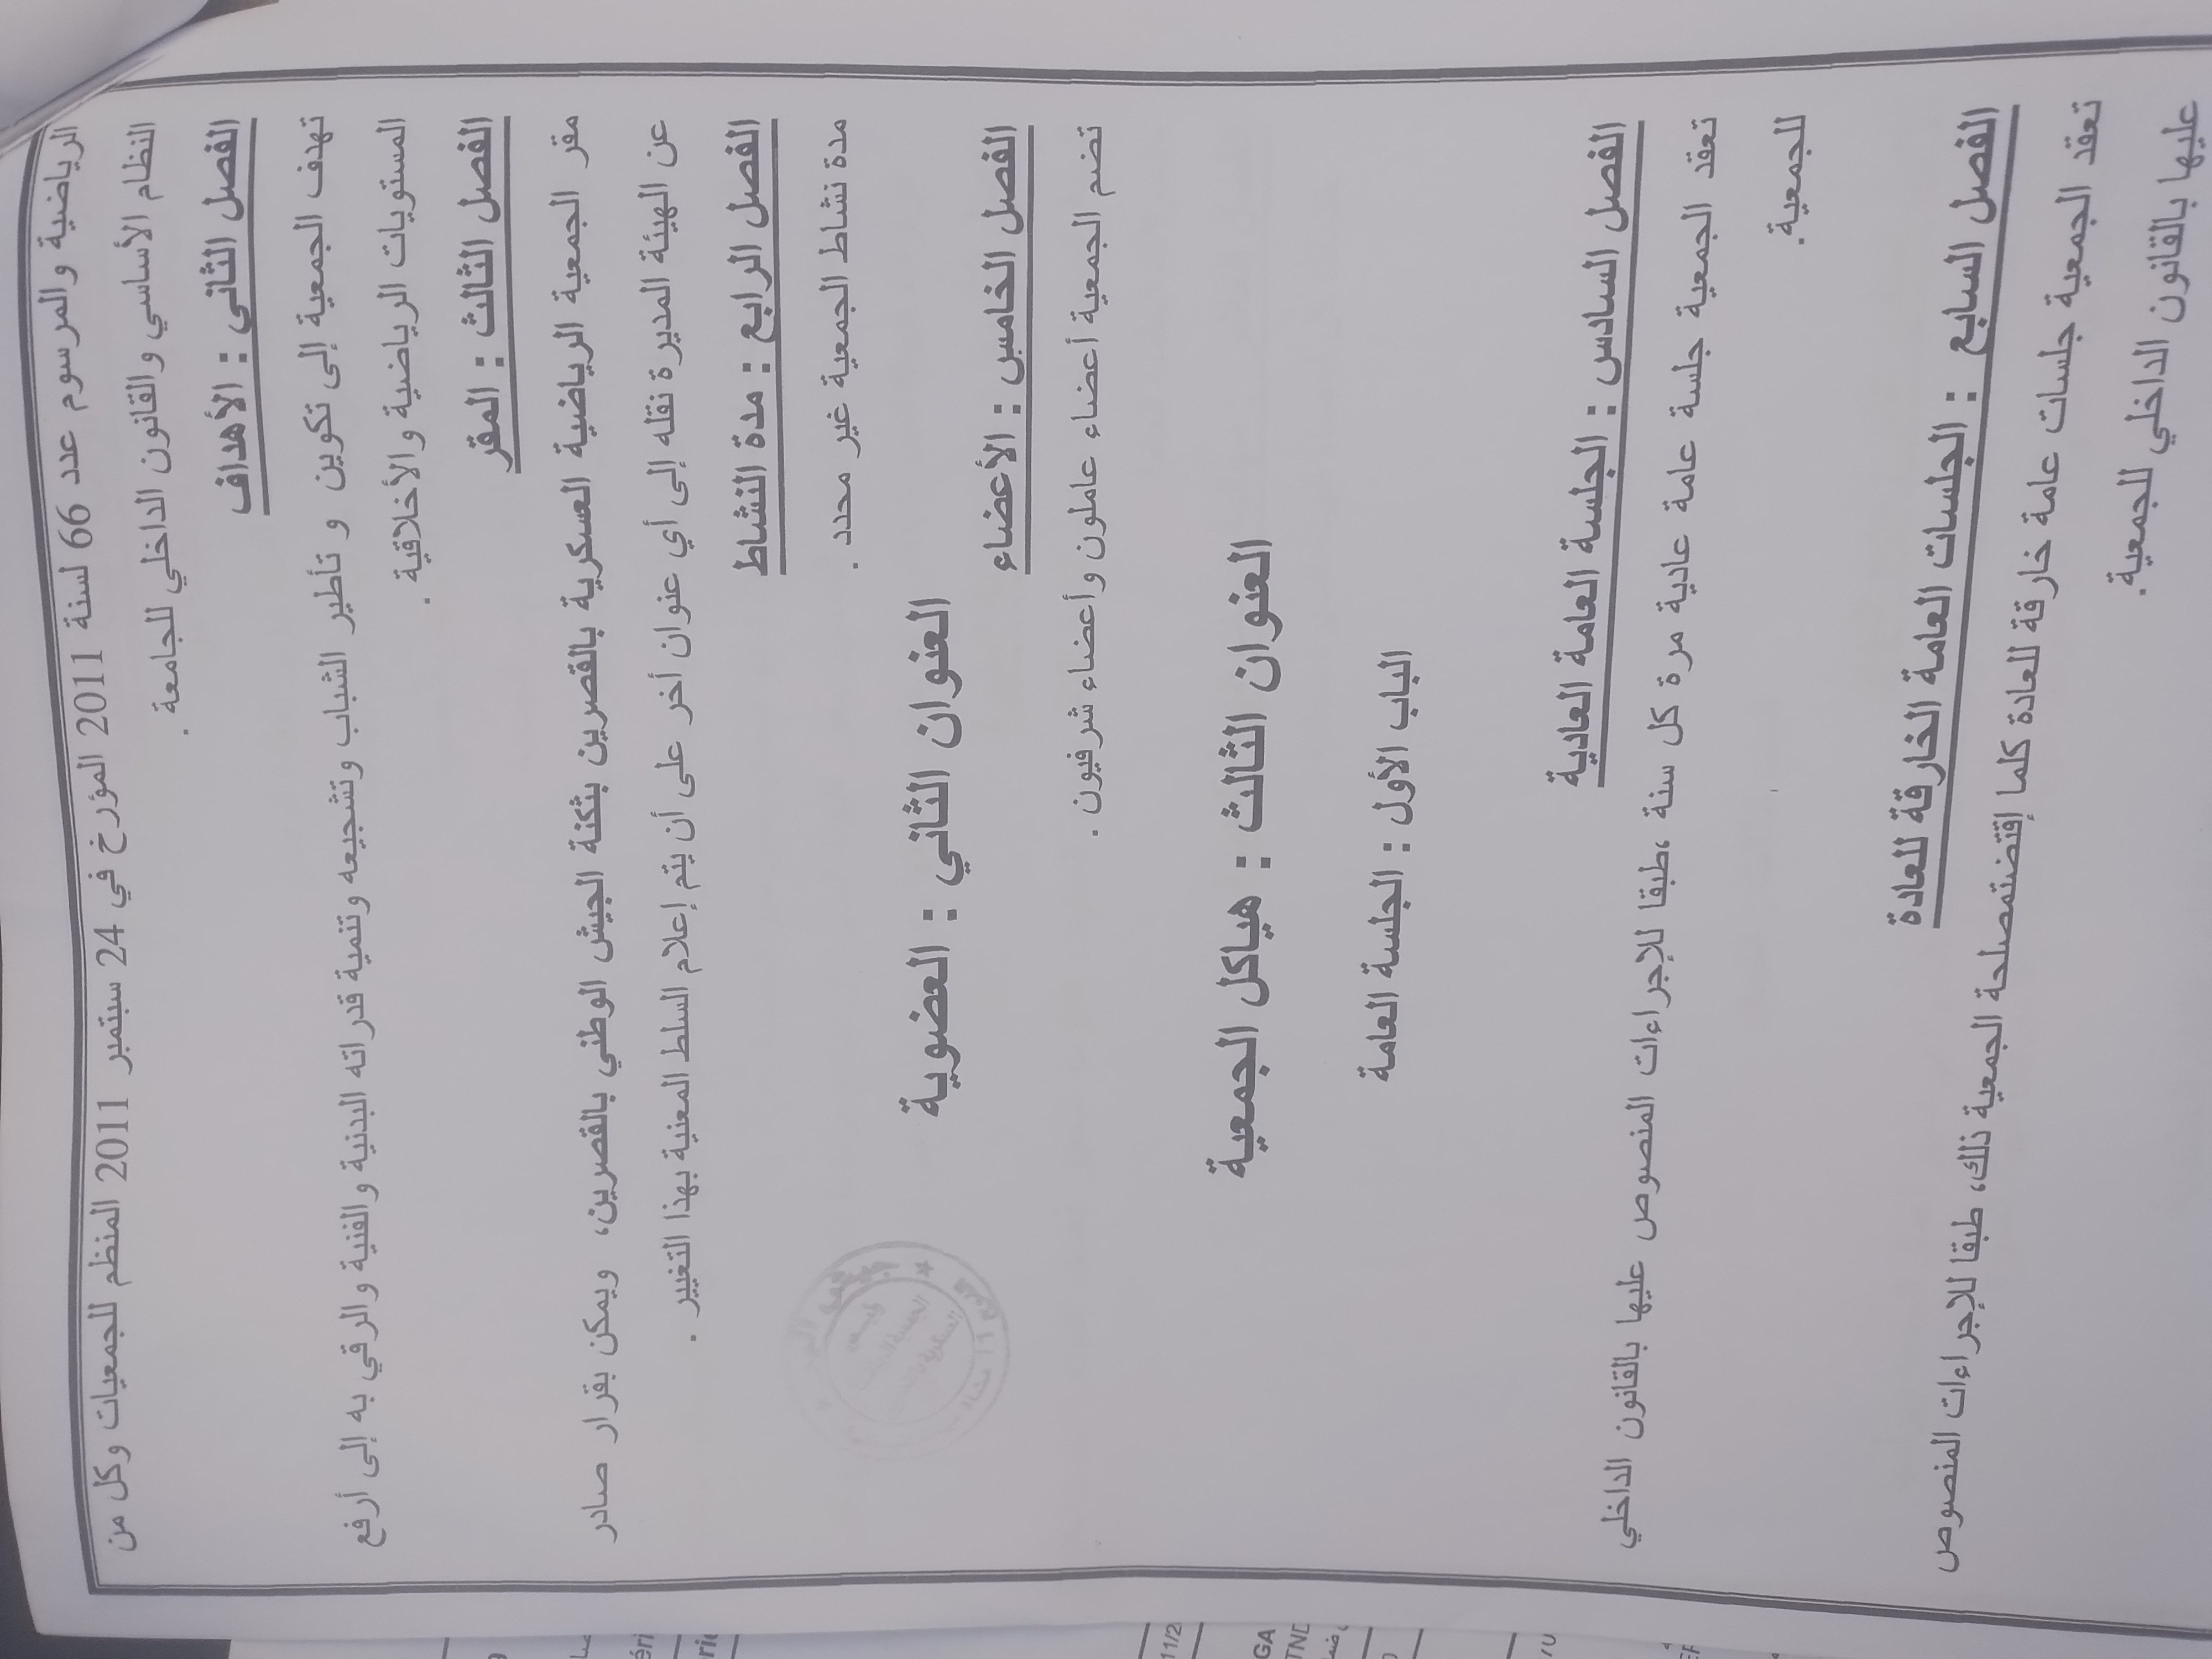 الرياضية والمرسوم عدد 66 لسنة 2011 المؤرخ في 24 سبتمبر 2011 المنظم للجمعيات وكل من
النظام الأساسي والقانون الداخلي للجامعة .
الفصل الثاني : الأهداف
تهدف الجمعية إلى تكوين و تأطير الشباب وتشجيعه وتنمية قدراته البدنية والفنية والرقي به إلى أرفع
المستويات الرياضية والأخلاقية .
الفصل الثالث : المقر
مقر الجمعية الرياضية العسكرية بالقصرين بثكنة الجيش الوطني بالقصرين، ويمكن بقرار صادر
عن الهيئة المديرة نقله إلى أي عنوان أخر على أن يتم إعلام السلط المعنية بهذا التغيير .
الفصل الرابع : مدة النشاط
مدة نشاط الجمعية غير محدد .
العنوان الثاني : العضوية
الفصل الخامس : الأعضاء
تضم الجمعية أعضاء عاملون وأعضاء شرفيون .
العنوان الثالث : هياكل الجمعية
الباب الأول : الجلسة العامة
الفصل السادس : الجلسة العامة العادية
تعقد الجمعية جلسة عامة عادية مرة كل سنة ،طبقا للإجراءات المنصوص عليها بالقانون الداخلي
للجمعية.
الفصل السابع : الجلسات العامة الخارقة للعادة
تعقد الجمعية جلسات عامة خارقة للعادة كلما إقتضتمصلحة الجمعية ذلك، طبقا للإجراءات المنصوص
عليها بالقانون الداخلي للجمعية.
11/2
GA
TND